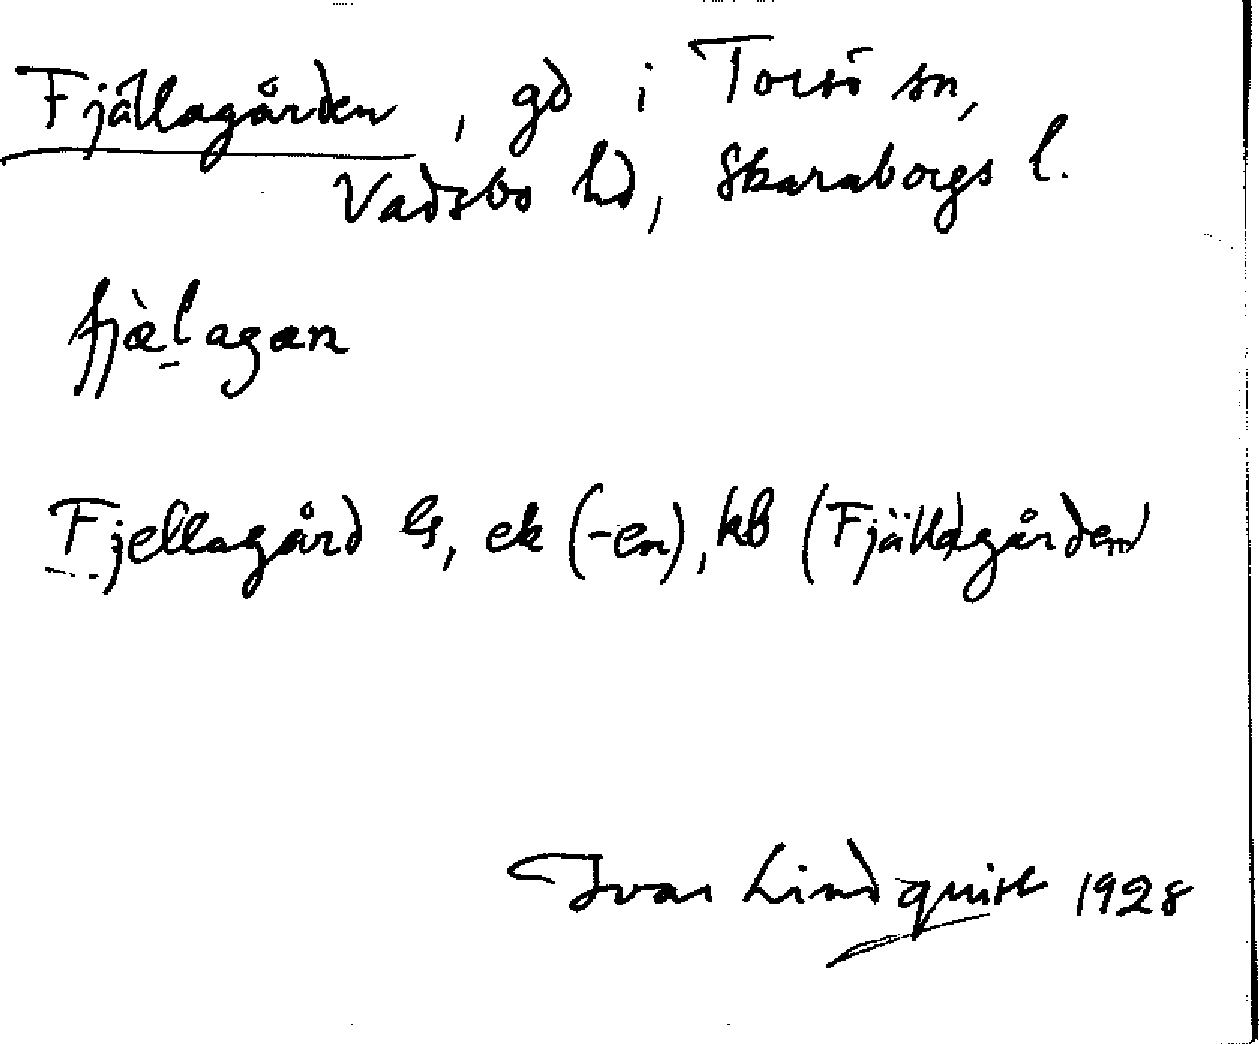 Fjällagården, gd i Torsö sn,
Vadsbo hd, Skaraborgs l.
fjæ̀lagan
Fjellagård G, ek (-en), kb (Fjällagården
Ivar Lindquist 1928